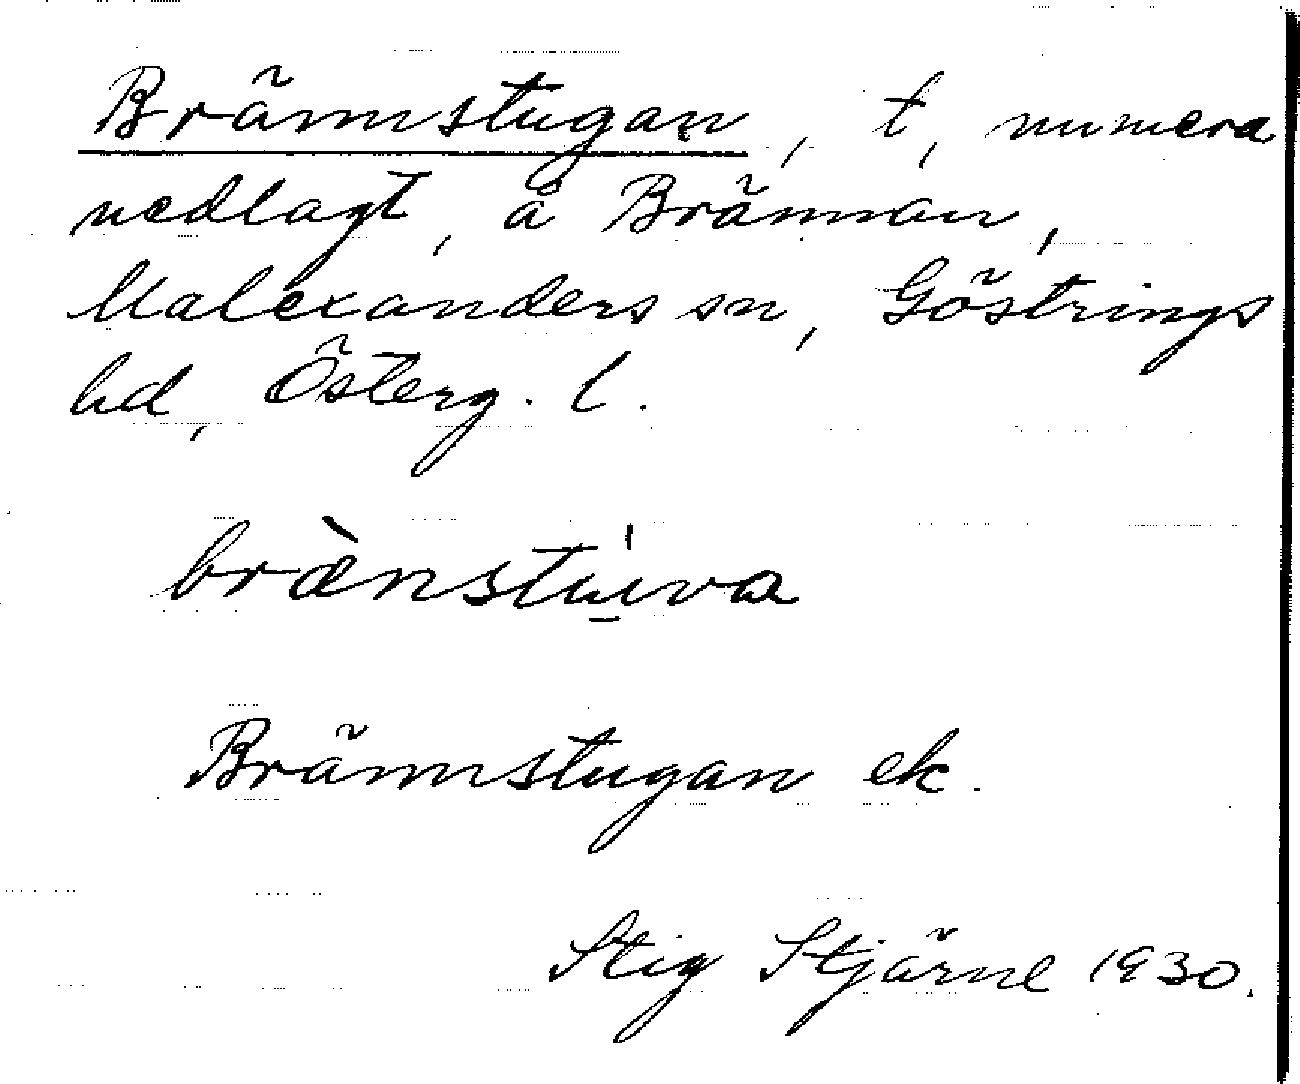 Brännstugan, t, numera
nedlagt, å Brännan,
Malexanders sn, Göstrings
hd, Österg. l.
brænstu̠va
Brännstugan ek.
Stig Stjärne 1930.